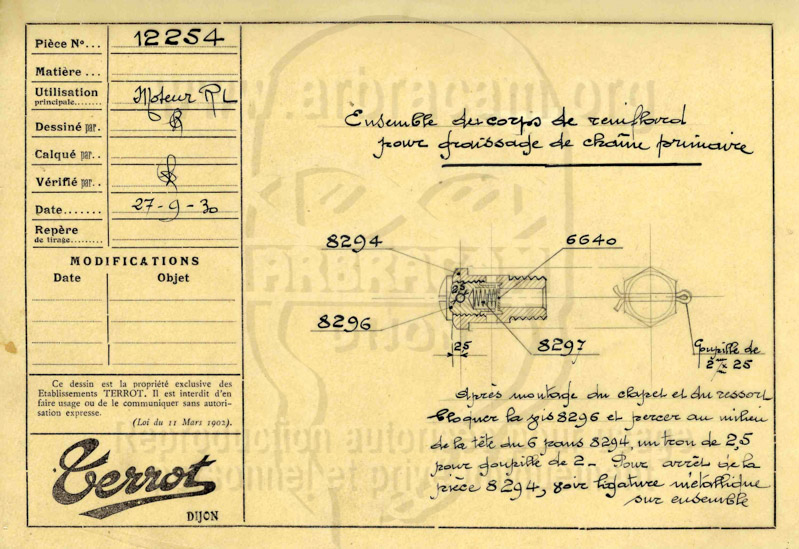 Pièce N° ... 12254
Matière ...
Utilisation Moteur RL
principale ........
Dessiné par.
Calqué par ..
Vérifié par ..
Date ....... 27-9-30
Repère
de tirage .........
MODIFICATIONS
Date Objet
Ce dessin est la propriété exclusive des
Etablissements TERROT. Il est interdit d'en
faire usage ou de le communiquer sans autori-
sation expresse.
(Loi du 11 Mars 1902).
Terrot
DIJON
www.arbracam.org
Ensemble du corps de reniflard
pour graissage de chaîne primaire
8294
6640
8296
8297
2,5
Goupille de
2 m/m × 25
ARBRACAM
DIJON
Après montage du clapet et du ressort
bloquer la vis 8296 et percer au milieu
de la tête du 6 pans 8294, un trou de 2,5
pour goupille de 2 - Pour arrêt de la
pièce 8294, voir ligature métallique
sur ensemble
Reproduction
et